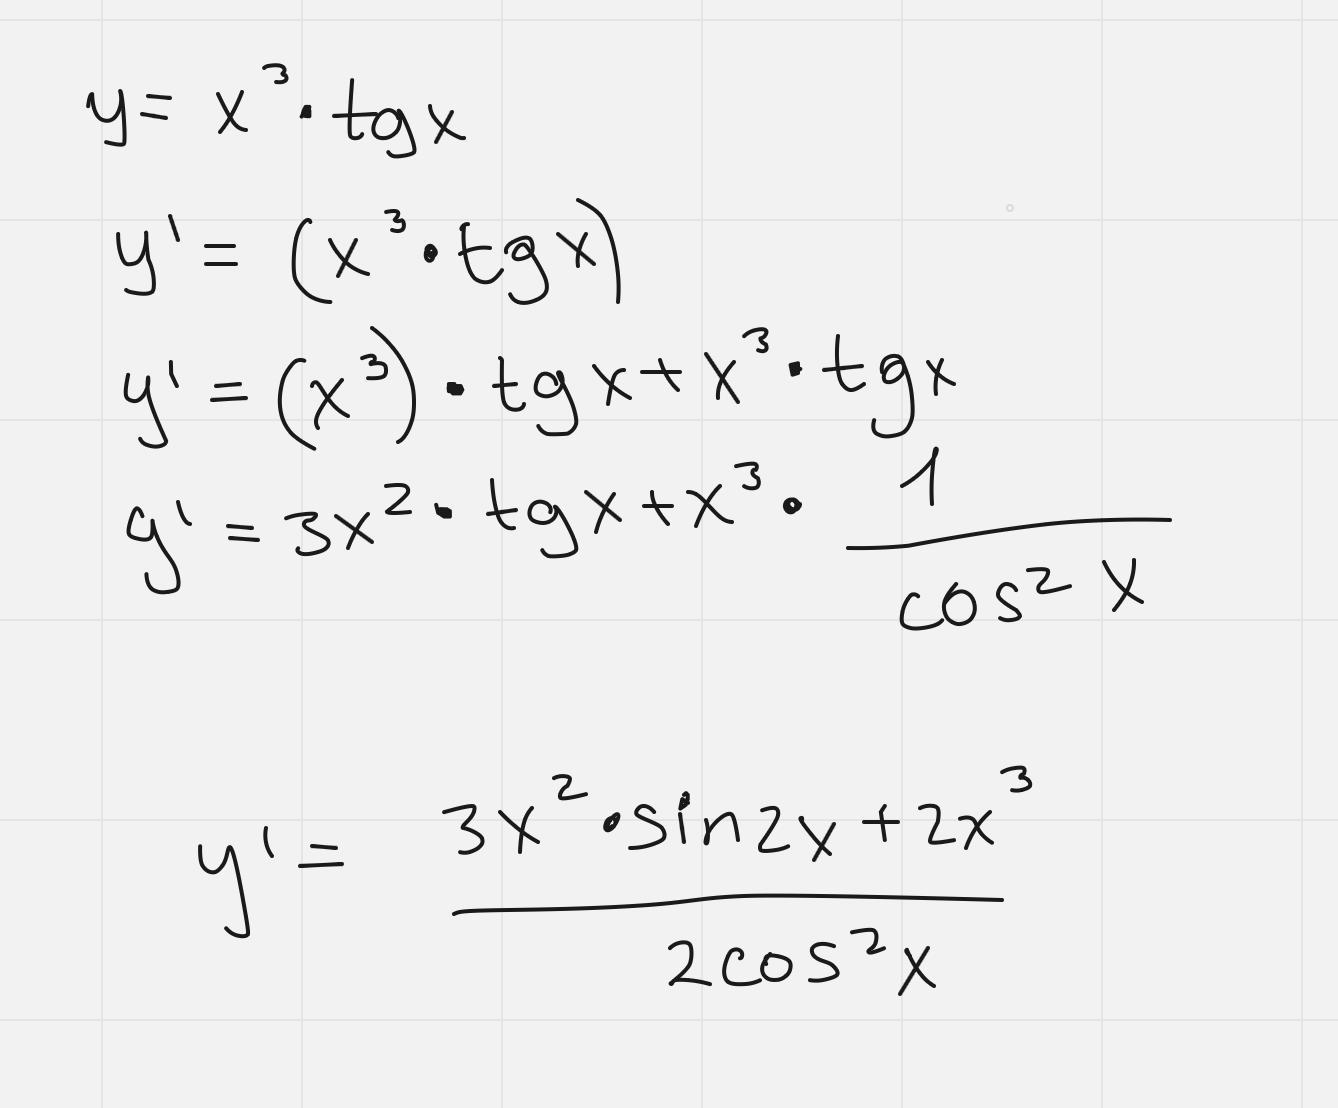 y = x³ · tgx
y' = (x³ · tgx)
y' = (x³) · tgx + x³ · tgx
y' = 3x² · tgx + x³ · 1/cos² x
y' = (3x² · sin2x + 2x³)/(2cos²x)